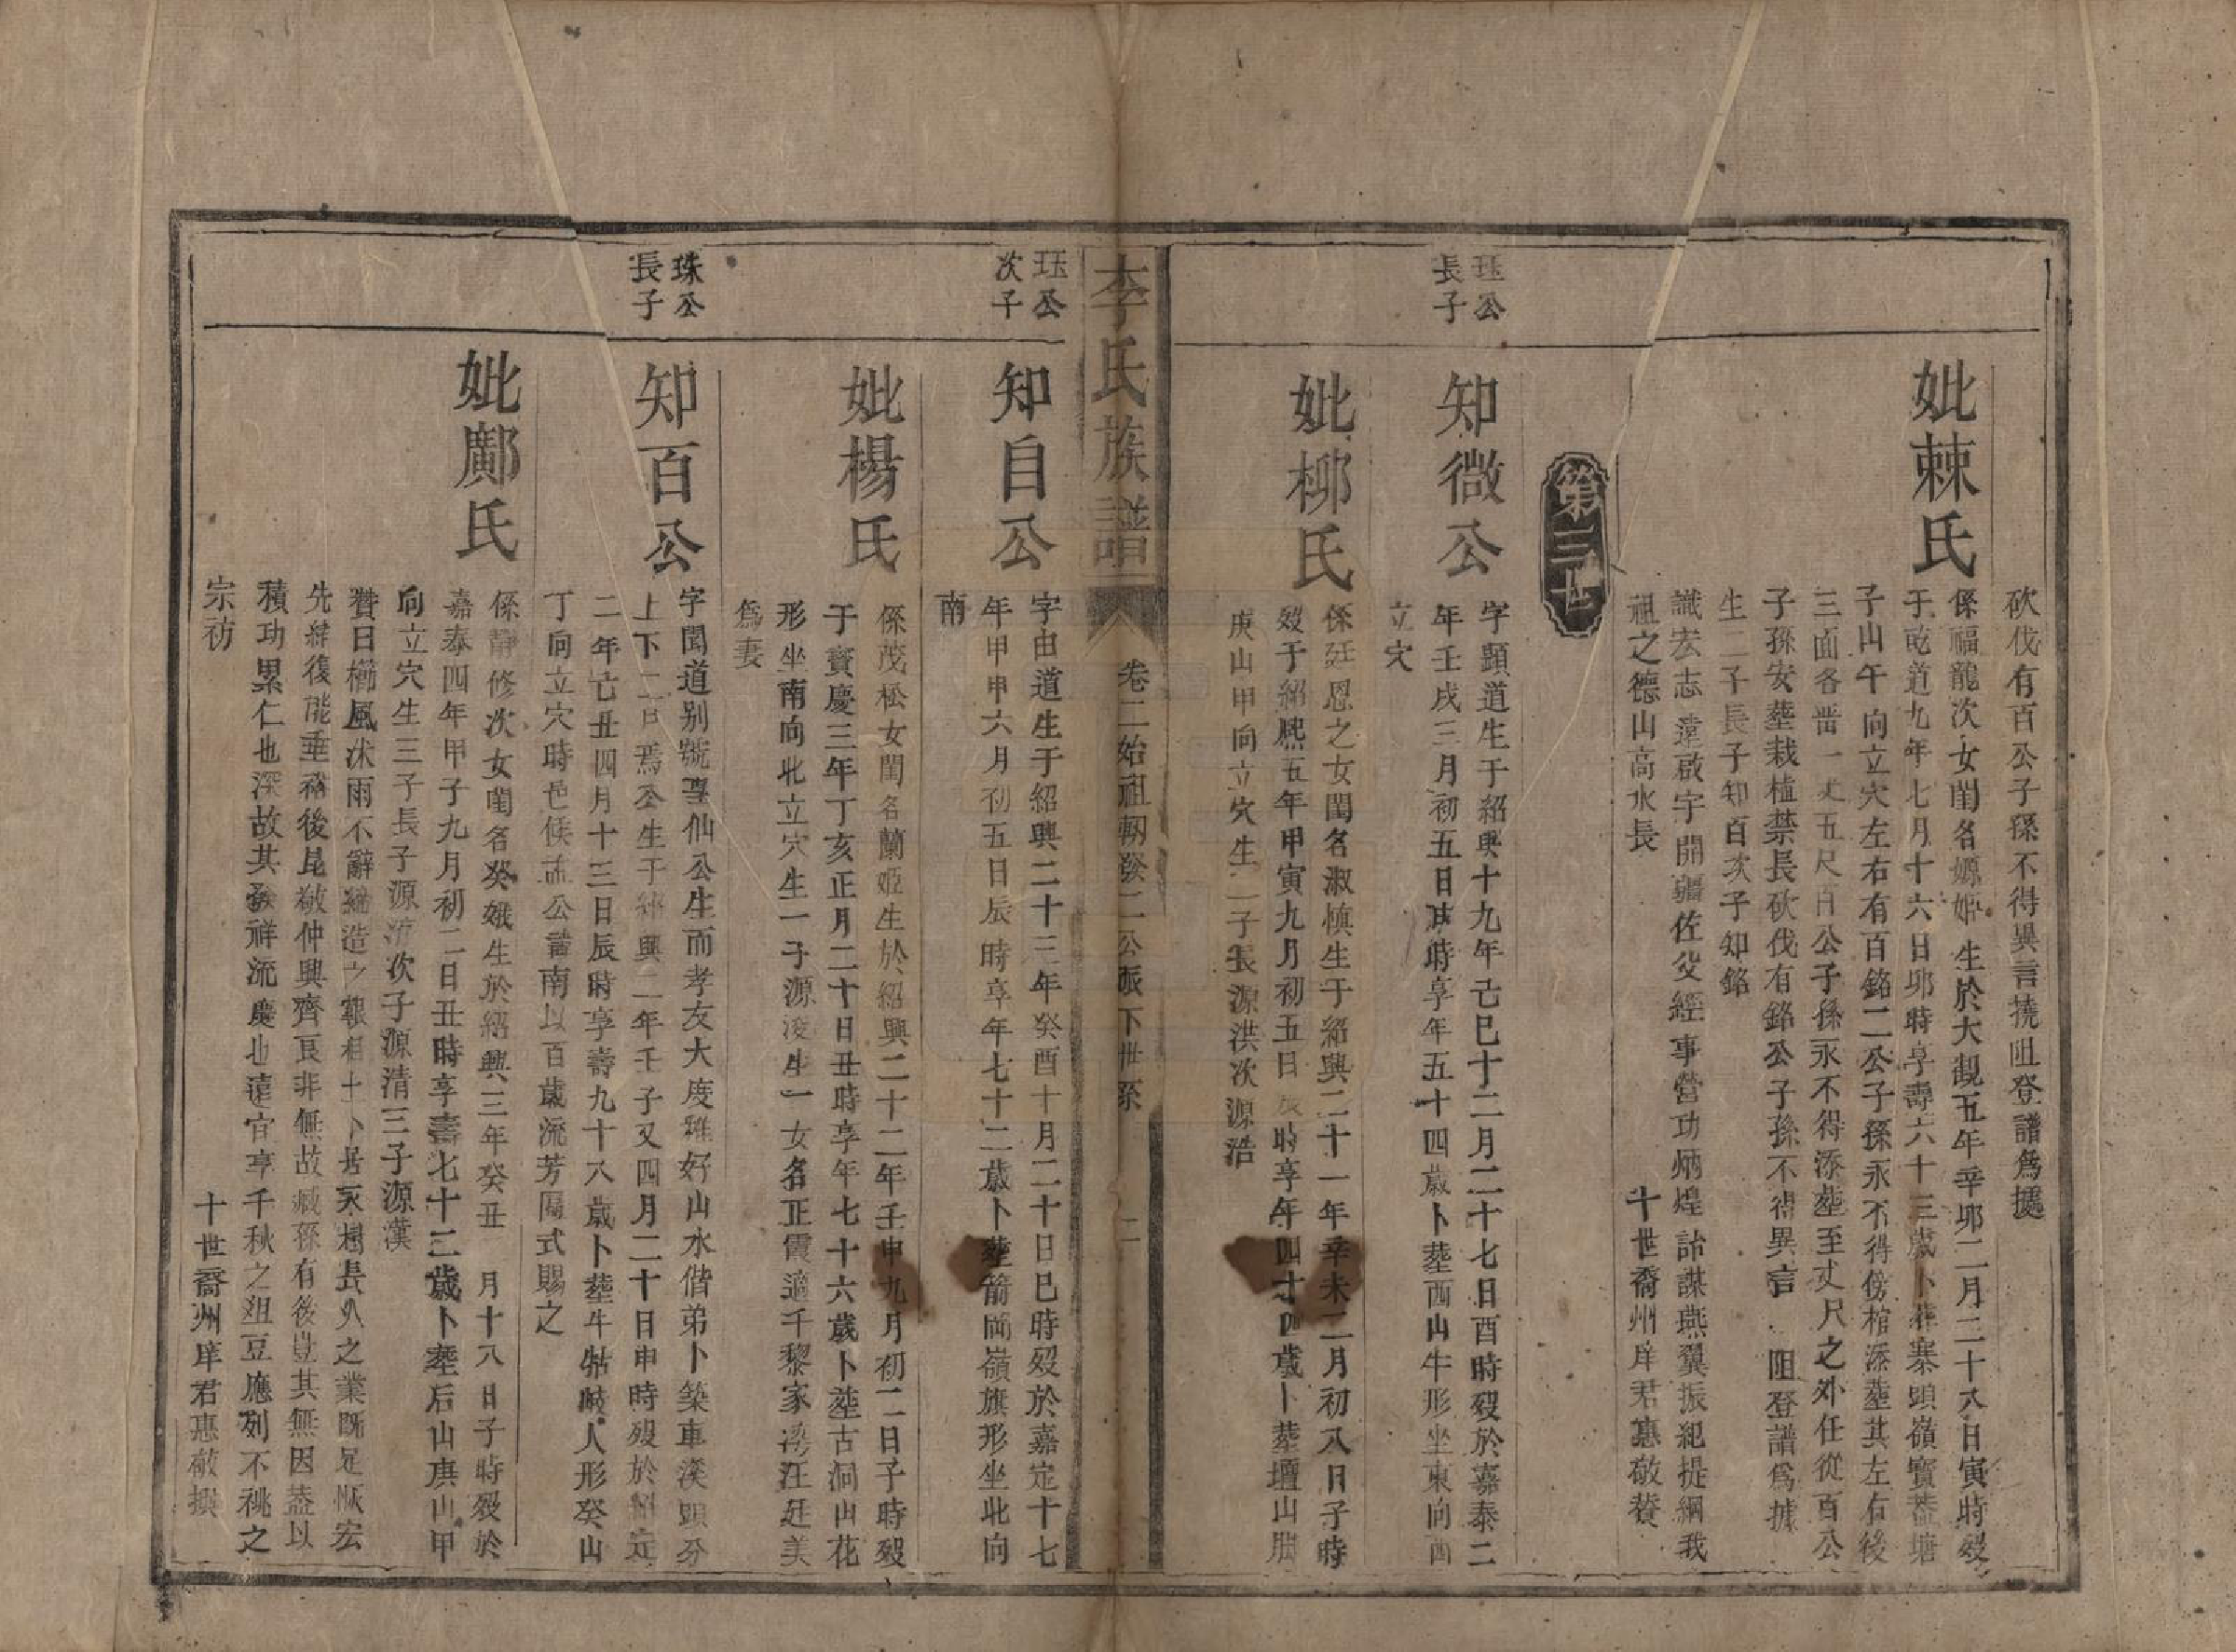 砍伐有百公子孫不得異言撓阻登譜爲據
妣棘氏
係福龍次女閨名嫄姬生於大觀五年辛卯二月二十八日寅時歿
于乾道九年七月十六日卯時享壽六十三歲卜葬寨頭嶺寶蓋塘
子山午向立穴左右有百銘二公子孫永不得傍棺添塟其左右後
三面各畱一丈五尺百公子孫永不得添塟至丈尺之外任從百公
子孫安塟栽植禁長砍伐有銘公子孫不得異言 阻登譜爲據
生二子長子知百次子知銘
識宏志遠啟宇開疆佐父經事營功炳煌詒謀燕翼振紀提綱我
祖之德山高水長 十世裔州庠君惠敬贊
第三世
珏公長子
知微公
字顯道生于紹興十九年己巳十二月二十七日酉時歿於嘉泰二
年壬戌三月初五日 時享年五十四歲卜塟西山牛形坐東向酉
立穴
妣柳氏
係廷恩之女閨名淑慎生于紹興二十一年辛未二月初八日子時
歿于紹熙五年甲寅九月初五日辰時享年四十四歲卜塟壇山脚
庚山甲向立穴生二子長源洪次源浩
李氏族譜 卷二始祖軔發二公派下世系 二
珏公次子
知自公
字由道生于紹興二十三年癸酉十月二十日巳時歿於嘉定十七
年甲申六月初五日辰時享年七十二歲卜塟箭崗嶺旗形坐北向
南
妣楊氏
係茂松女閨名蘭姬生於紹興二十二年壬申九月初二日子時歿
于寶慶三年丁亥正月二十日丑時享年七十六歲卜塟古洞山花
形坐南向北立穴生一子源浚生一女名正霞適千黎家灣汪廷美
爲妻
珠公長子
知百公
字聞道别號聖仙公生而孝友大度雅好山水偕弟卜築車溪頭分
上下二日焉公生于紹興二年壬子又四月二十日申時歿於紹定
二年己丑四月十三日辰時享壽九十八歲卜塟牛牯 人形癸山
丁向立穴時邑侯孟公諱南以百歲流芳匾式賜之
妣鄺氏
係靜修次女閨名癸娥生於紹興三年癸丑 月十八日子時歿於
嘉泰四年甲子九月初二日丑時享壽七十二歲卜塟后山庚山甲
向立穴生三子長子源 次子源清三子源漢
贊曰櫛風沐雨不辭締造之艱相土卜居永想長久之業旣足恢宏
先緒復能垂裕後昆敬仲興齊良非無故臧孫有後豈其無因蓋以
積功累仁也深故其發祥流慶也遠宜享千秋之俎豆應列不祧之
宗祊 十世裔州庠君惠敬撰